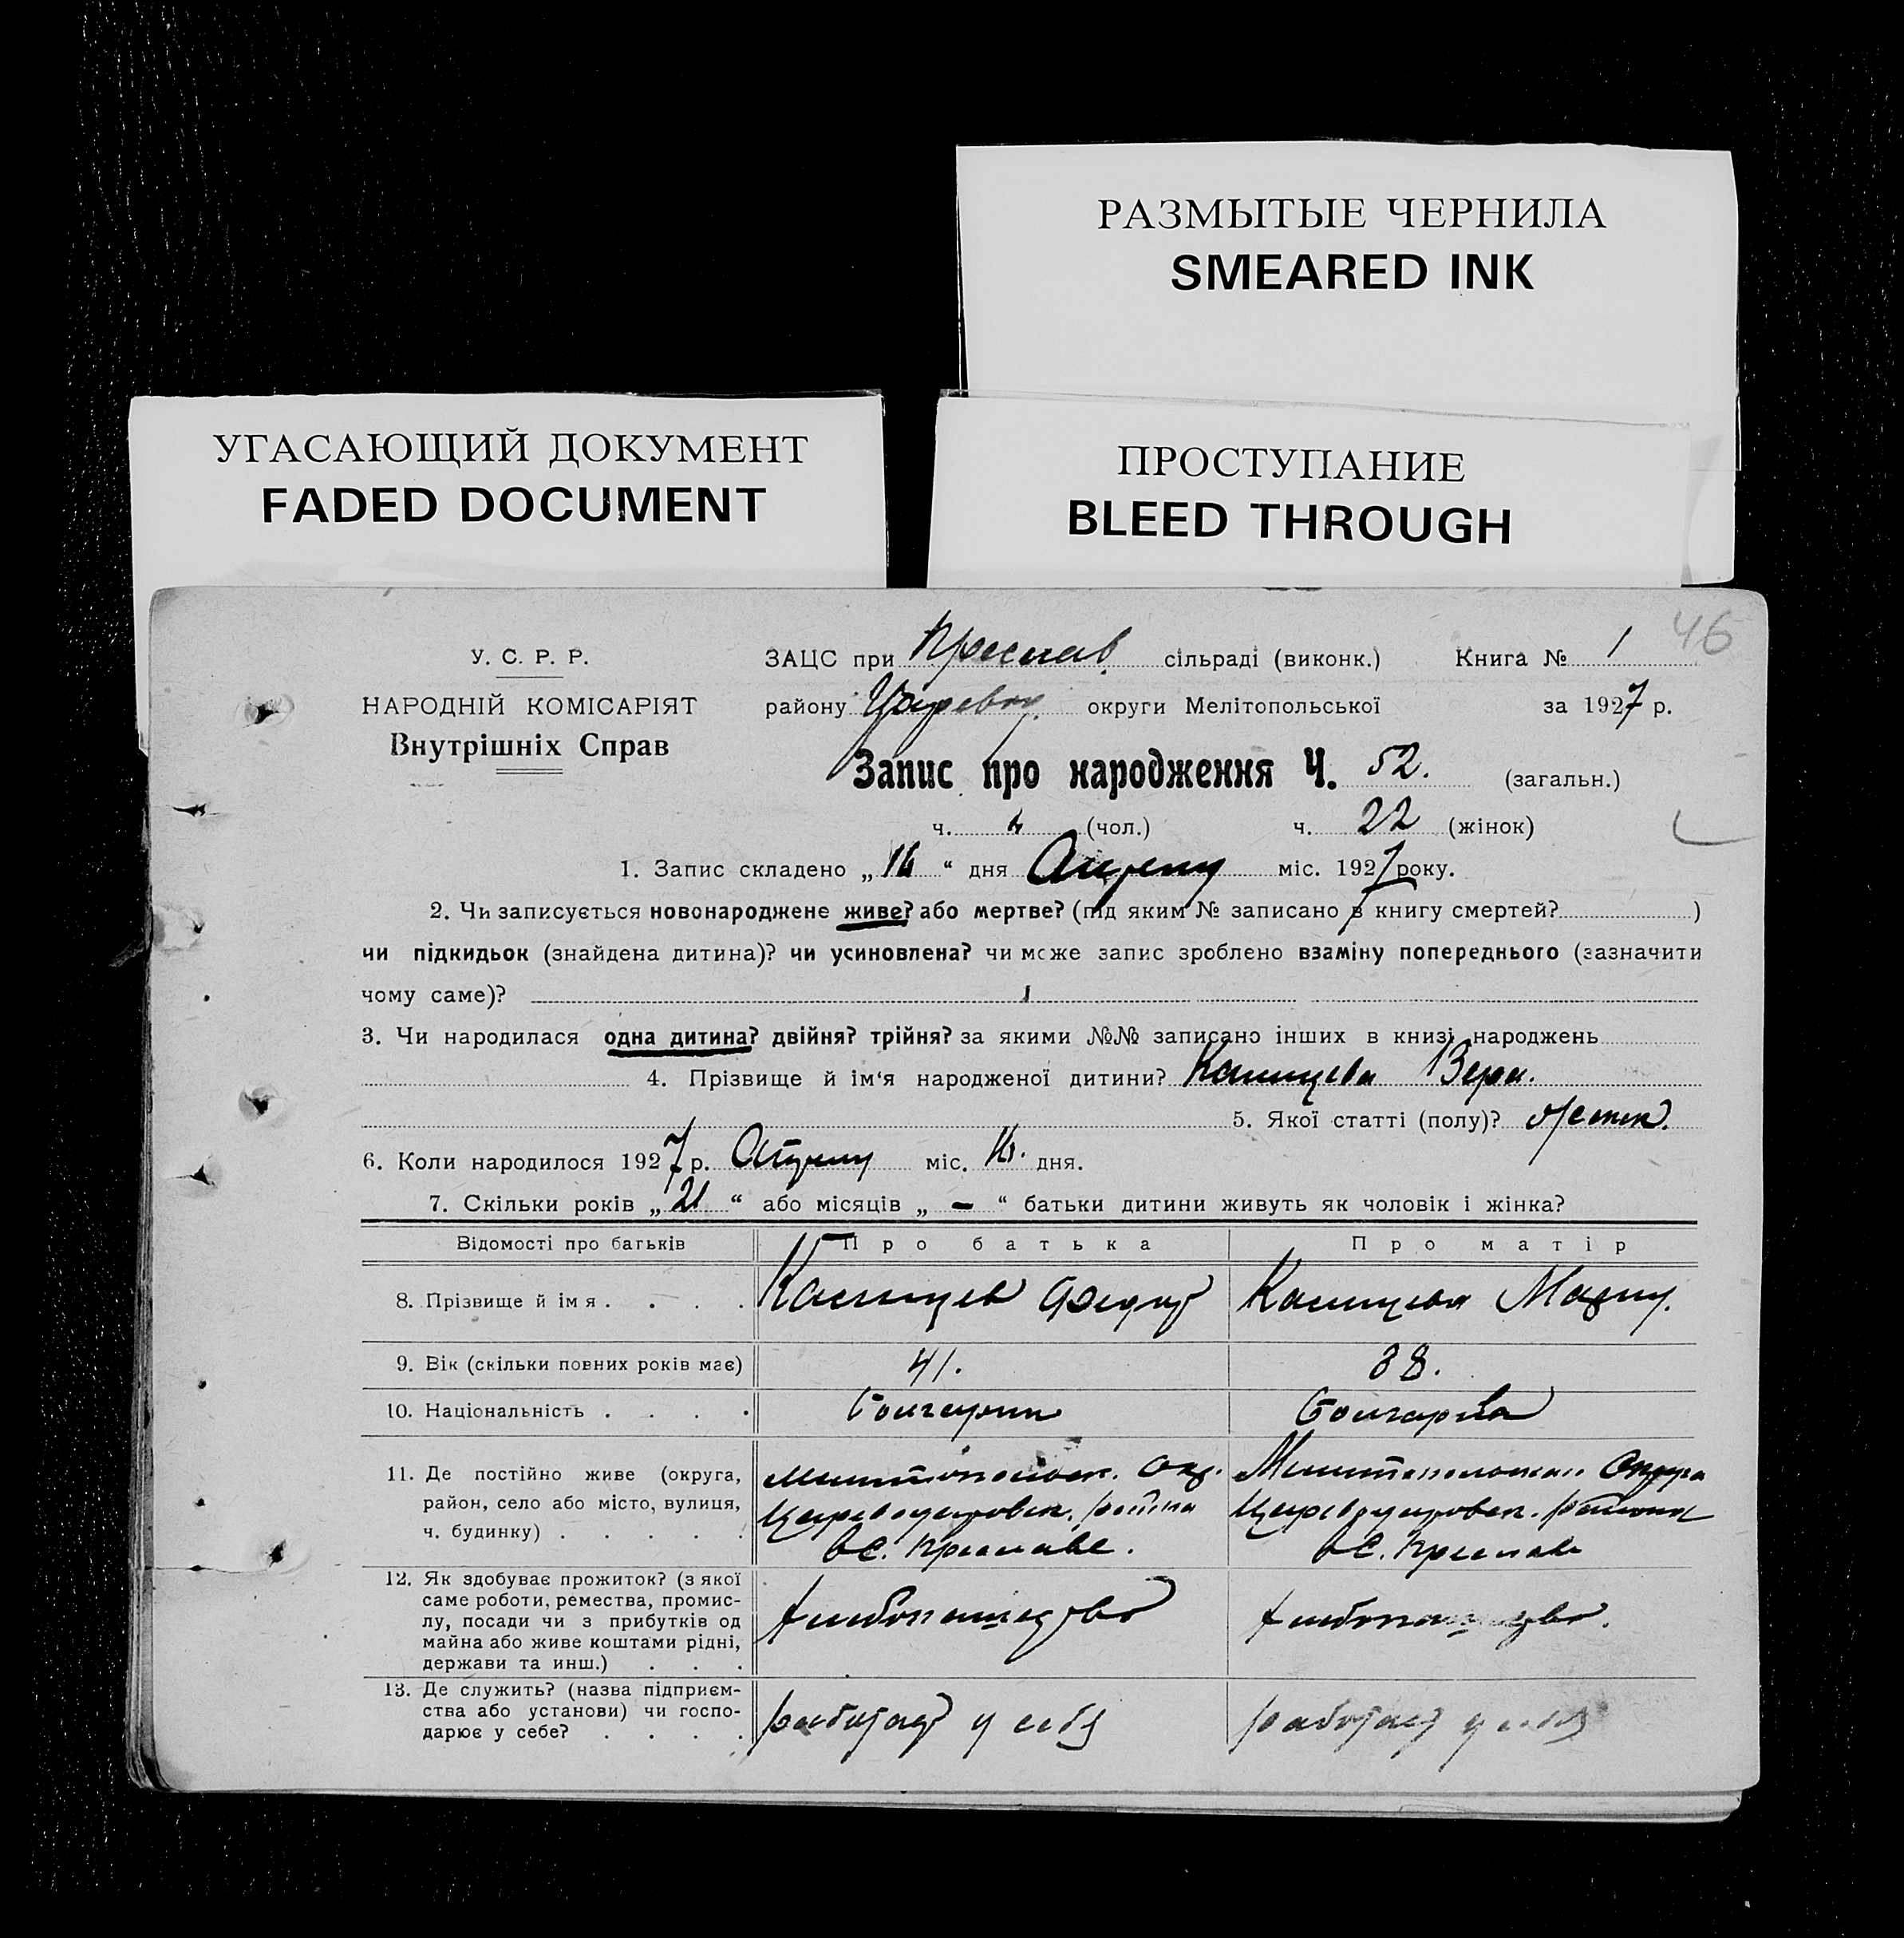 РАЗМЫТЫЕ ЧЕРНИЛА
SMEARED INK
УГАСАЮЩИЙ ДОКУМЕНТ
FADED DOCUMENT
ПРОСТУПАНИЕ
BLEED THROUGH
46
У. С. Р. Р.
НАРОДНІЙ КОМІСАРІЯТ
Внутрішніх Справ
ЗАЦС при Преслав. сільраді (виконк.) Книга № 1
району Царевод. округи Мелітопольської за 1927 р.
Запис про народження Ч. 52. (загальн.)
ч. (чол.) ч. 22 (жінок)
1. Запис складено „16“ дня міс. 1927 року.
2. Чи записується новонароджене живе? або мертве? (під яким № записано в книгу смертей? )
чи підкидьок (знайдена дитина)? чи усиновлена? чи може запис зроблено взаміну попереднього (зазначити
чому саме)?
3. Чи народилася одна дитина? двійня? трійня? за якими №№ записано інших в книзі народжень
4. Прізвище й ім‘я народженої дитини? Вера.
5. Якої статті (полу)? женск.
6. Коли народилося 1927 р. міс. дня.
7. Скільки років „21“ або місяців „ – “ батьки дитини живуть як чоловік і жінка?
Відомості про батьків Про батька Про матір
8. Прізвище й імя . . . . Федор
9. Вік (скільки повних років має) 41. 38.
10. Національність . . . . Болгарин Болгарка
11. Де постійно живе (округа, район, село або місто, вулиця, ч. будинку) . . . . .
Мелитопольск. Окр. Мелитопольская Округа
Цареводаровск. района Цареводаровск. района
в С. Преславе. в С. Преславе
12. Як здобуває прожиток? (з якої
саме роботи, ремества, промис-
лу, посади чи з прибутків од
майна або живе коштами рідні,
держави та инш.) . . .
хлебопашество хлебопашество.
13. Де служить? (назва підприєм-
ства або установи) чи госпо-
дарює у себе? . . . .
работает у себя работает у себя